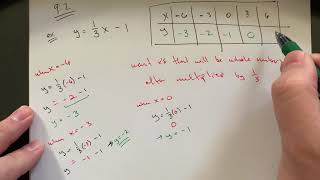 9.2
ex y = 1/3 x - 1
x -6 -3 0 3 6
y -3 -2 -1 0
want x's that will be whole numbers
after multiplied by 1/3
when x=-6
y = 1/3(-6) - 1
y = -2 - 1
y = -3
when x=-3
y = 1/3(-3) - 1
y = -1 - 1 → y=-2
when x=0
y = 1/3(0) - 1
0
→ y = -1